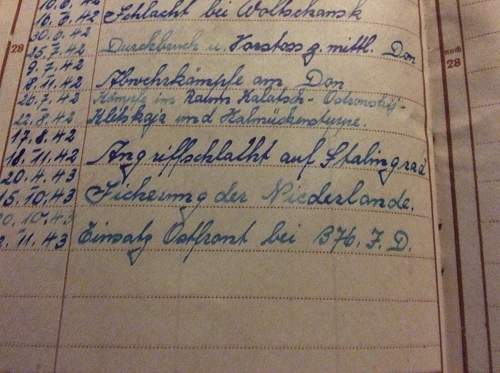 10.6.42
16.6.42 Schlacht bei Woltschansk
30.6.42
28
25.7.42 Durchbruch u. Vorstoss z. mittl. Don
9.7.42
8.11.42 Abwehrkämpfe am Don
26.7.42 Kämpfe im Raum Kalatsch-
22.8.42 Kletskaja und Kalmückensteppe.
17.8.42
18.11.42 Angriffschlacht auf Stalingrad
20.4.43
15.10.43 Sicherung der Niederlande.
20.10.43
.11.43 Einsatz Ostfront bei 376. J. D.
noch
28